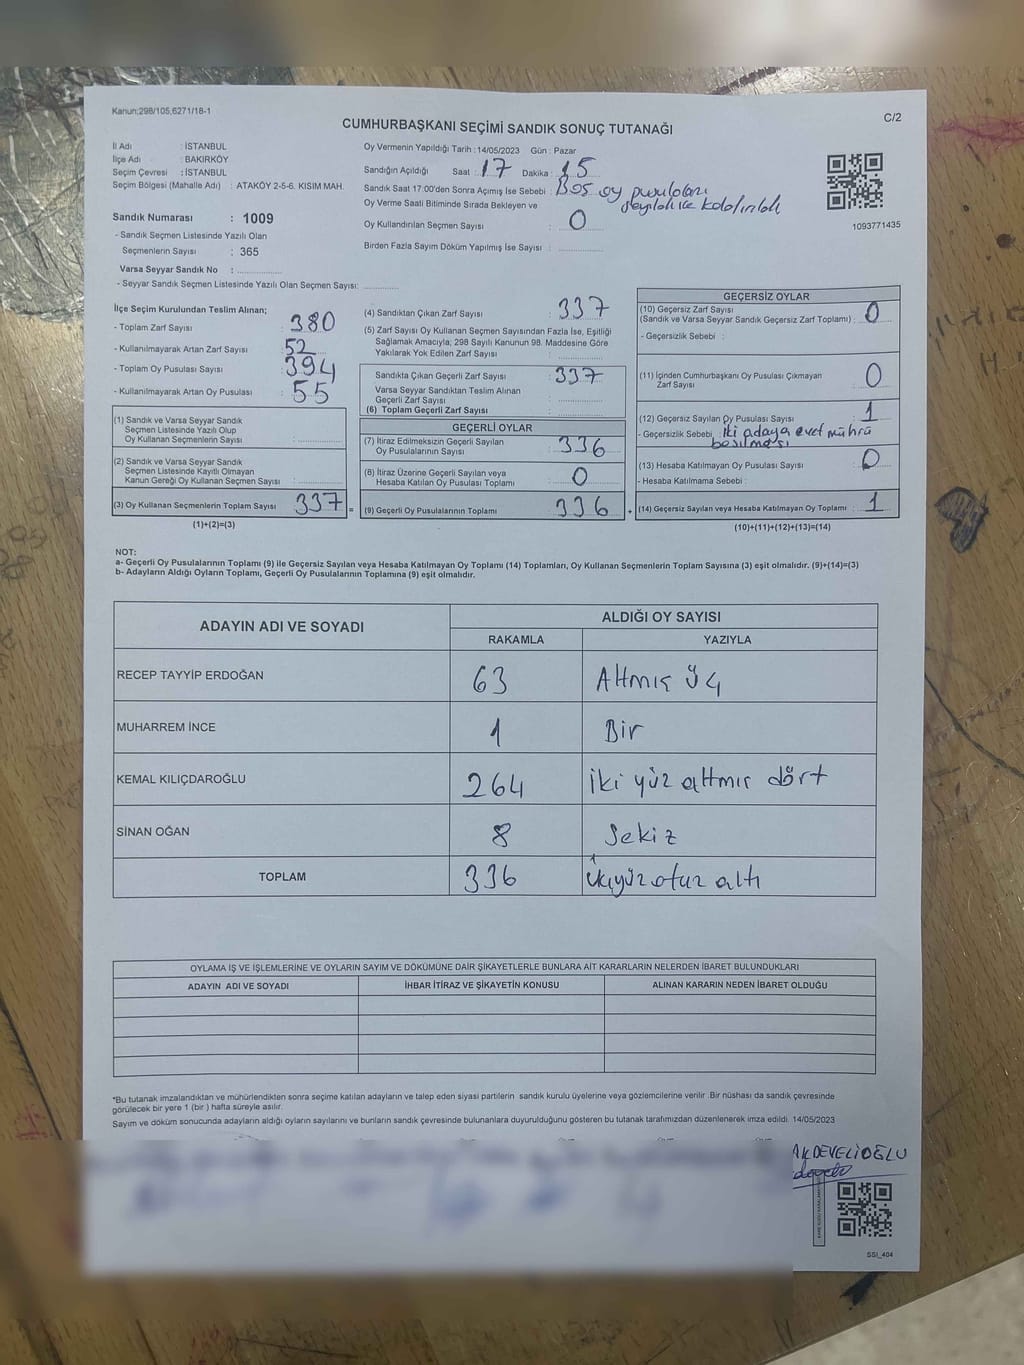 Kanun:298/105,6271/18-1
C/2
CUMHURBAŞKANI SEÇİMİ SANDIK SONUÇ TUTANAĞI
İl Adı : İSTANBUL
İlçe Adı : BAKIRKÖY
Seçim Çevresi : İSTANBUL
Seçim Bölgesi (Mahalle Adı) : ATAKÖY 2-5-6. KISIM MAH.
Sandık Numarası : 1009
- Sandık Seçmen Listesinde Yazılı Olan
Seçmenlerin Sayısı : 365
Varsa Seyyar Sandık No :
- Seyyar Sandık Seçmen Listesinde Yazılı Olan Seçmen Sayısı:
Oy Vermenin Yapıldığı Tarih : 14/05/2023 Gün : Pazar
Sandığın Açıldığı Saat : 17 Dakika : 15
Sandık Saat 17:00'den Sonra Açımış İse Sebebi : Boş oy pusulaları
Oy Verme Saati Bitiminde Sırada Bekleyen ve
Oy Kullandırılan Seçmen Sayısı : 0
Birden Fazla Sayım Döküm Yapılmış İse Sayısı :
1093771435
İlçe Seçim Kurulundan Teslim Alınan;
- Toplam Zarf Sayısı : 380
- Kullanılmayarak Artan Zarf Sayısı : 52
- Toplam Oy Pusulası Sayısı : 394
- Kullanılmayarak Artan Oy Pusulası : 55
(1) Sandık ve Varsa Seyyar Sandık
Seçmen Listesinde Yazılı Olup
Oy Kullanan Seçmenlerin Sayısı :
(2) Sandık ve Varsa Seyyar Sandık
Seçmen Listesinde Kayıtlı Olmayan
Kanun Gereği Oy Kullanan Seçmen Sayısı :
(3) Oy Kullanan Seçmenlerin Toplam Sayısı : 337 =
(1)+(2)=(3)
(4) Sandıktan Çıkan Zarf Sayısı : 337
(5) Zarf Sayısı Oy Kullanan Seçmen Sayısından Fazla İse, Eşitliği
Sağlamak Amacıyla; 298 Sayılı Kanunun 98. Maddesine Göre
Yakılarak Yok Edilen Zarf Sayısı :
Sandıkta Çıkan Geçerli Zarf Sayısı : 337
Varsa Seyyar Sandıktan Teslim Alınan
Geçerli Zarf Sayısı :
(6) Toplam Geçerli Zarf Sayısı :
GEÇERLİ OYLAR
(7) İtiraz Edilmeksizin Geçerli Sayılan
Oy Pusulalarının Sayısı : 336
(8) İtiraz Üzerine Geçerli Sayılan veya
Hesaba Katılan Oy Pusulası Toplamı : 0
(9) Geçerli Oy Pusulalarının Toplamı : 336 +
GEÇERSİZ OYLAR
(10) Geçersiz Zarf Sayısı
(Sandık ve Varsa Seyyar Sandık Geçersiz Zarf Toplamı) : 0
- Geçersizlik Sebebi :
(11) İçinden Cumhurbaşkanı Oy Pusulası Çıkmayan
Zarf Sayısı : 0
(12) Geçersiz Sayılan Oy Pusulası Sayısı : 1
- Geçersizlik Sebebi : İki adaya evet mührü
basılması
(13) Hesaba Katılmayan Oy Pusulası Sayısı : 0
- Hesaba Katılmama Sebebi :
(14) Geçersiz Sayılan veya Hesaba Katılmayan Oy Toplamı : 1
(10)+(11)+(12)+(13)=(14)
NOT:
a- Geçerli Oy Pusulalarının Toplamı (9) ile Geçersiz Sayılan veya Hesaba Katılmayan Oy Toplamı (14) Toplamları, Oy Kullanan Seçmenlerin Toplam Sayısına (3) eşit olmalıdır. (9)+(14)=(3)
b- Adayların Aldığı Oyların Toplamı, Geçerli Oy Pusulalarının Toplamına (9) eşit olmalıdır.
ADAYIN ADI VE SOYADI
ALDIĞI OY SAYISI
RAKAMLA YAZIYLA
RECEP TAYYİP ERDOĞAN 63 Altmış üç
MUHARREM İNCE 1 Bir
KEMAL KILIÇDAROĞLU 264 İki yüz altmış dört
SİNAN OĞAN 8 Sekiz
TOPLAM 336 Üçyüz otuz altı
OYLAMA İŞ VE İŞLEMLERİNE VE OYLARIN SAYIM VE DÖKÜMÜNE DAİR ŞİKAYETLERLE BUNLARA AİT KARARLARIN NELERDEN İBARET BULUNDUKLARI
ADAYIN ADI VE SOYADI İHBAR İTİRAZ VE ŞİKAYETİN KONUSU ALINAN KARARIN NEDEN İBARET OLDUĞU
*Bu tutanak imzalandıktan ve mühürlendikten sonra seçime katılan adayların ve talep eden siyasi partilerin sandık kurulu üyelerine veya gözlemcilerine verilir. Bir nüshası da sandık çevresinde
görülecek bir yere 1 (bir ) hafta süreyle asılır.
Sayım ve döküm sonucunda adayların aldığı oyların sayılarını ve bunların sandık çevresinde bulunanlara duyurulduğunu gösteren bu tutanak tarafımızdan düzenlenerek imza edildi. 14/05/2023
AKDEVELİOĞLU
SSİ_404